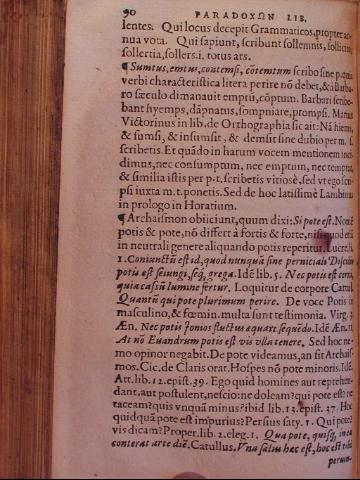 90 PARADOXΩN LIB.
lentes. Qui locus decepit Grammaticos, propter an-
nua vota. Qui sapiunt, scribunt sollemnis, sollicitus
sollertia, sollers. i. totus ars.
¶ Sumtus, emtus, contemsi, cōtemtum scribo sine p. quia
verbi characteristica litera perire nō debet, & à Barba-
ro sæculo dimanauit emptū, cōptum. Barbari scribe-
bant hyemps, dāpnatus, sompniare, prompsi. Marius
Victorinus in lib. de Orthographia sic ait: Nā hiems,
& sumsi, & insumsit, & demsit sine dubio per m. s.
scribetis. Et quādo in harum vocem mentionem inci-
dimus, nec consumptum, nec emptum, nec temptat,
& similia istis per p. t. scribetis vitiosè, sed vt ego scri-
psi iuxta m. t. ponetis. Sed de hoc latissimè Lambinus
in prologo in Horatium.
¶ Archaismon obiiciunt, quum dixi: Si pote est. Nō est
potis & pote, nō differt à fortis & forte, nisi quod etiā
in neutrali genere aliquando potis reperitur. Lucre. li.
1. Coniunctū est id, quod nunquā sine perniciali Discidio
potis est seiungi, seq́; grega. Idē lib. 5. Nec potis est cerni,
quia cassiū lumine fertur. Loquitur de corpore Catull.
Quantū qui pote plurimum perire. De voce Potis in
masculino, & fœmin. multa sunt testimonia. Virg. 3.
Æn. Nec potis Jonios fluctus æquare sequēdo. Idē Æn. 11.
At nō Euandrum potis est vis vlla tenere. Sed hoc ne-
mo opinor negabit. De pote videamus, an sit Archais-
mos. Cic. de Claris orat. Hospes nō pote minoris. Idē
Att. lib. 12. epist. 39. Ego quid homines aut reprehen-
dant, aut postulent, nescio: ne doleam? qui pote est? ne
taceam? quis vnquā minus? ibid lib. 13. epist. 37. Hoc
quidquā pote est impurius? Persius saty. 1. Qui pote?
vis dicam? Proper. lib. 2. eleg. 1. Qua pote, quisq́;, in ea
conterat arte diē. Catullus. Vna salus hæc est, hoc est tibi
peruin-